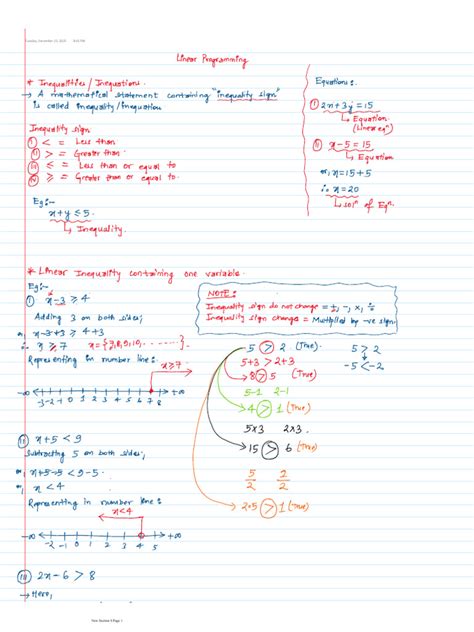 Tuesday, November 23, 2021
Linear Programming
* Inequalities / Inequations.
→ A mathematical statement containing "inequality sign"
is called inequality/inequation
Inequality sign
(i) < = Less than
(ii) > = Greater than
(iii) ≤ = Less than or equal to
(iv) ≥ = Greater than or equal to.
Eg:-
x+y ≤ 5.
↳ Inequality.
Equations:
(i) 2x+3y=15
↳ Equation
(Linear eqn)
(ii) x-5=15
↳ Equation
or, x=15+5
∴ x=20
↳ soln of Eqn.
* Linear Inequality containing one variable.
Eg:-
(i) x-3 ≥ 4
Adding 3 on both sides;
or, x-3+3 ≥ 4+3
∴ x ≥ 7 x={7,8,9,10, ......}
Representing in number line:
x≥7
-∞ -3 -2 -1 0 1 2 3 4 5 6 7 8 +∞
NOTE:
Inequality sign do not change = +, -, x, ÷
Inequality sign change = Multiplied by -ve sign.
5 > 2 (True).
5+3 > 2+3
→ 8 > 5
5-1 2-1
→ 4 > 1 (True)
5x3 2x3.
→ 15 > 6 (True)
5/2 2/2
2.5 > 1 (True)
5 > 2
-5 < -2
(ii) x+5 < 9
Subtracting 5 on both sides;
or, x+5-5 < 9-5.
or, x < 4
Representing in number line:
x<4
-∞ -2 -1 0 1 2 3 4 5 +∞
(iii) 2x-6 > 8
→ Here,
New Section 9 Page 1